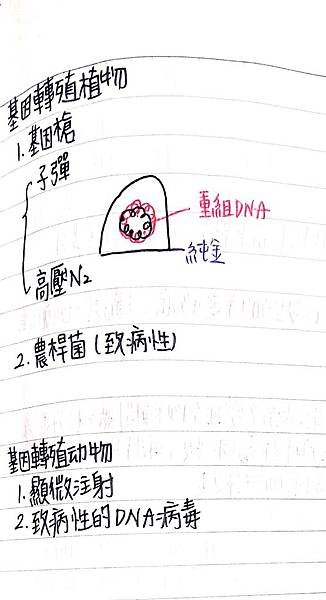 基因轉殖植物
1. 基因槍
子彈
重組DNA
純金
高壓N2
2. 農桿菌(致病性)
基因轉殖动物
1. 顯微注射
2. 致病性的DNA病毒